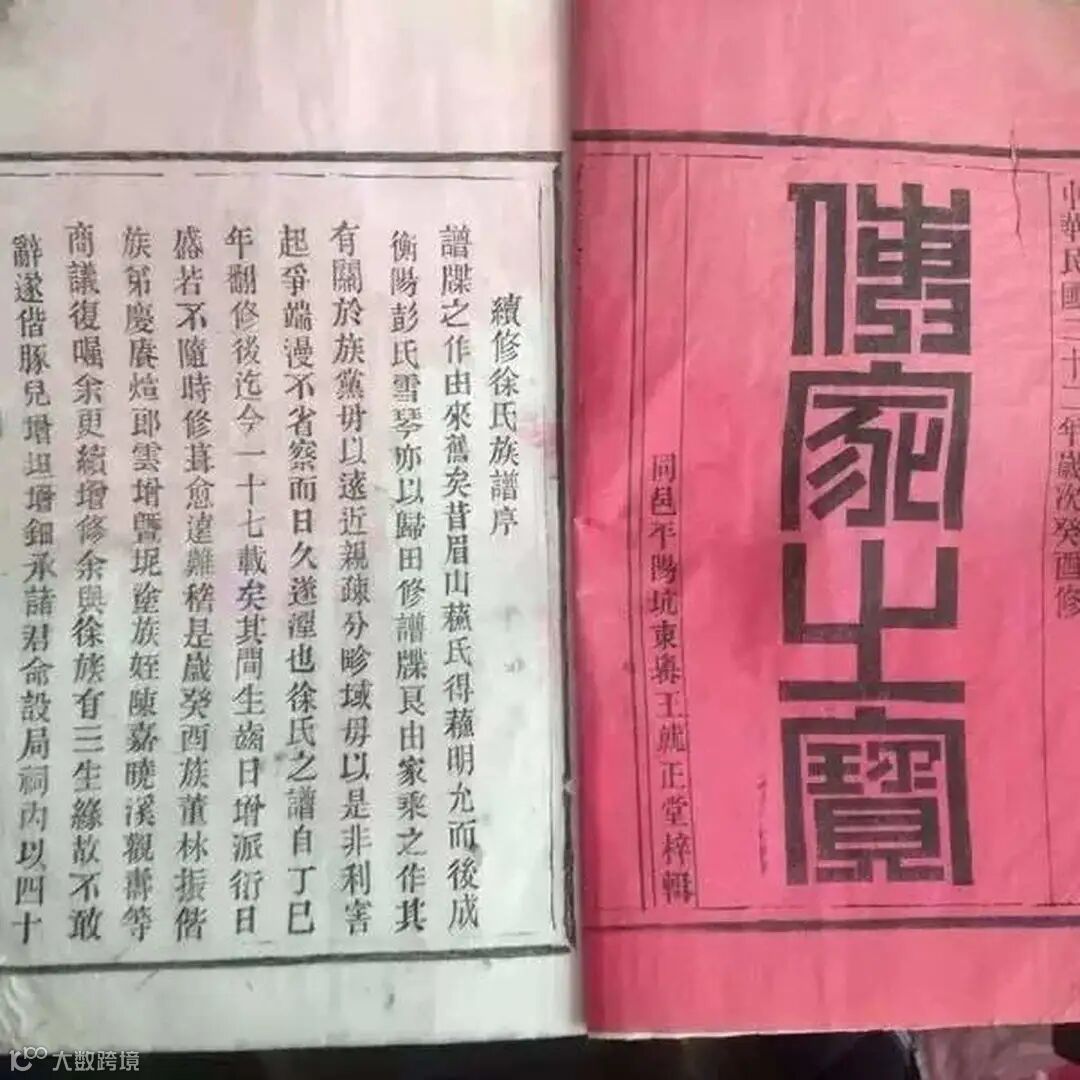 中華民國二十二年歲次癸酉修
傳家之寶
同邑年陽坑東粵王就正堂梓輯
續修徐氏族譜序
譜牒之作由來舊矣昔眉山蘇氏得蘇明允而後成
衡陽彭氏雪琴亦以歸田修譜牒良由家乘之作其
有關於族黨毋以遠近親疎分畛域毋以是非利害
起爭端漫不省察而日久遂湮也徐氏之譜自丁巳
年翻修後迄今一十七載矣其間生齒日增派衍日
盛若不隨時修葺愈遠難稽是歲癸酉族董林振偕
族第慶賡煊郎雲增暨坭塗族姪陳嘉曉溪觀壽等
商議復囑余更續增修余與徐族有三生緣故不敢
辭遂偕豚兒增坦增鈿承諸君命設局祠內以四十
大数跨境